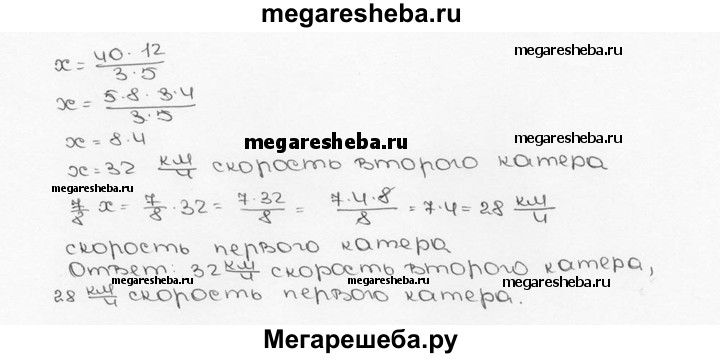 megaresheba.ru
x = (40 · 12)/(3 · 5)
megaresheba.ru
x = (5 · 8 · 3 · 4)/(3 · 5)
x = 8 · 4
megaresheba.ru
megaresheba.ru
x = 32 км/ч скорость второго катера
megaresheba.ru
7/8 x = 7/8 · 32 = (7 · 32)/8 = (7 · 4 · 8)/8 = 7 · 4 = 28 км/ч
скорость первого катера
Ответ: 32 км/ч скорость второго катера,
28 км/ч скорость первого катера.
megaresheba.ru
megaresheba.ru
Мегарешеба.ру